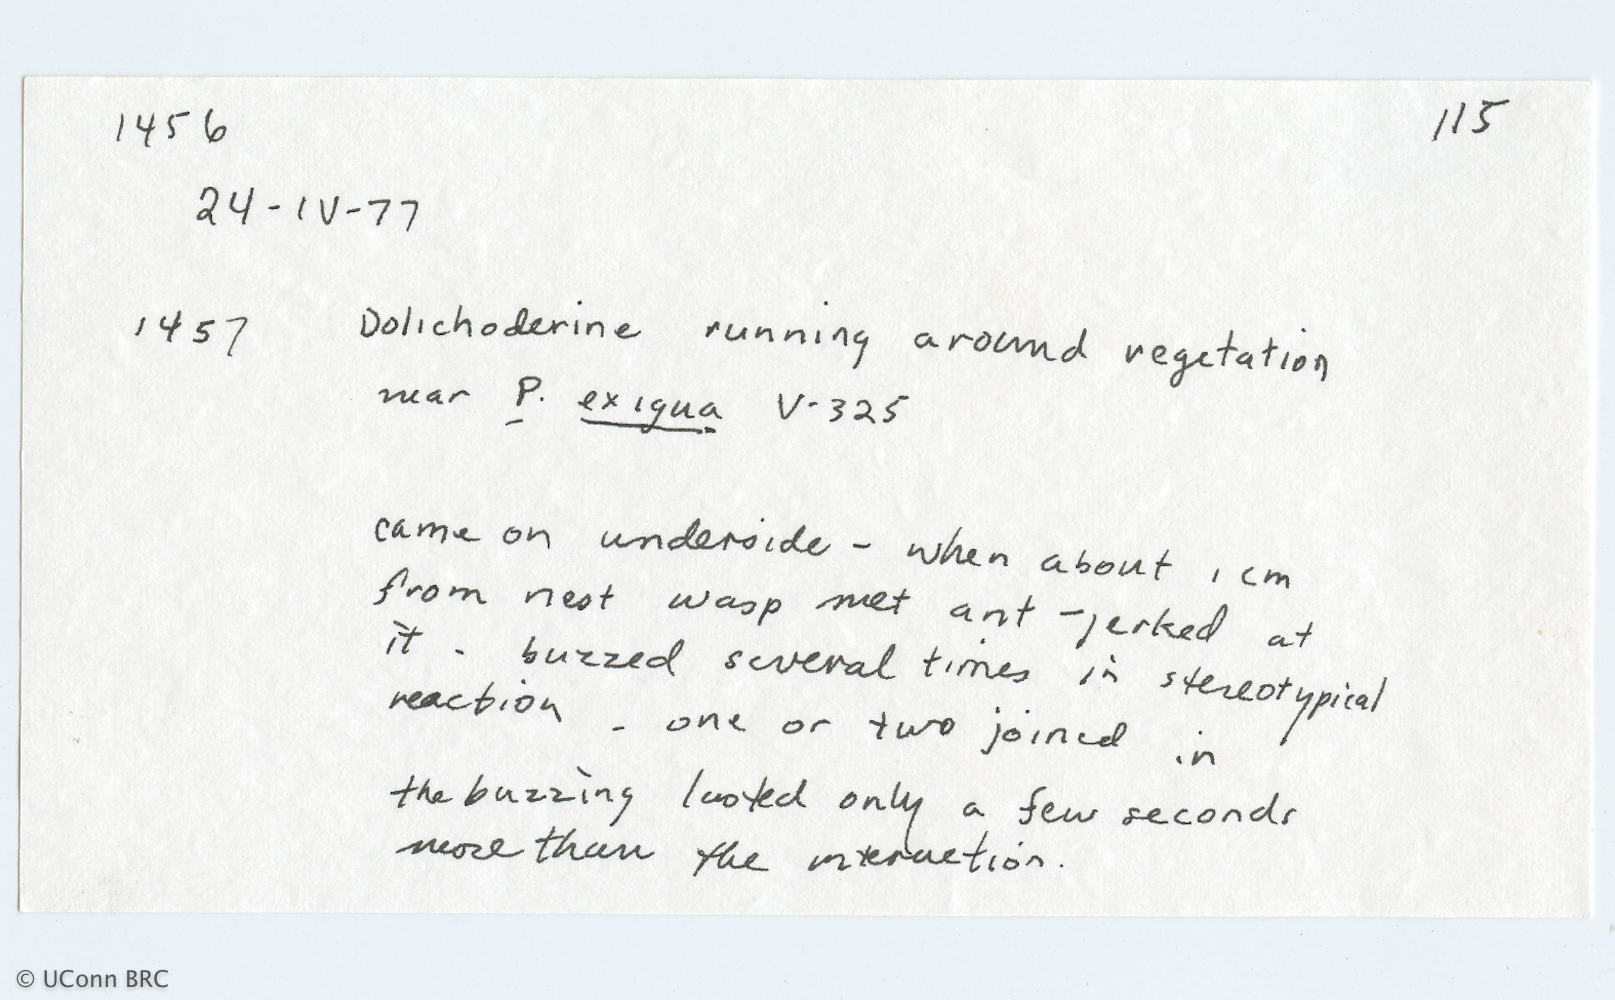 1456 115
24-IV-77
1457 Dolichoderine running around vegetation
near P. exigua V-325
came on underside - when about 1 cm
from nest wasp met ant - jerked at
it - buzzed several times in stereotypical
reaction - one or two joined in
the buzzing lasted only a few seconds
more than the interaction.
© UConn BRC